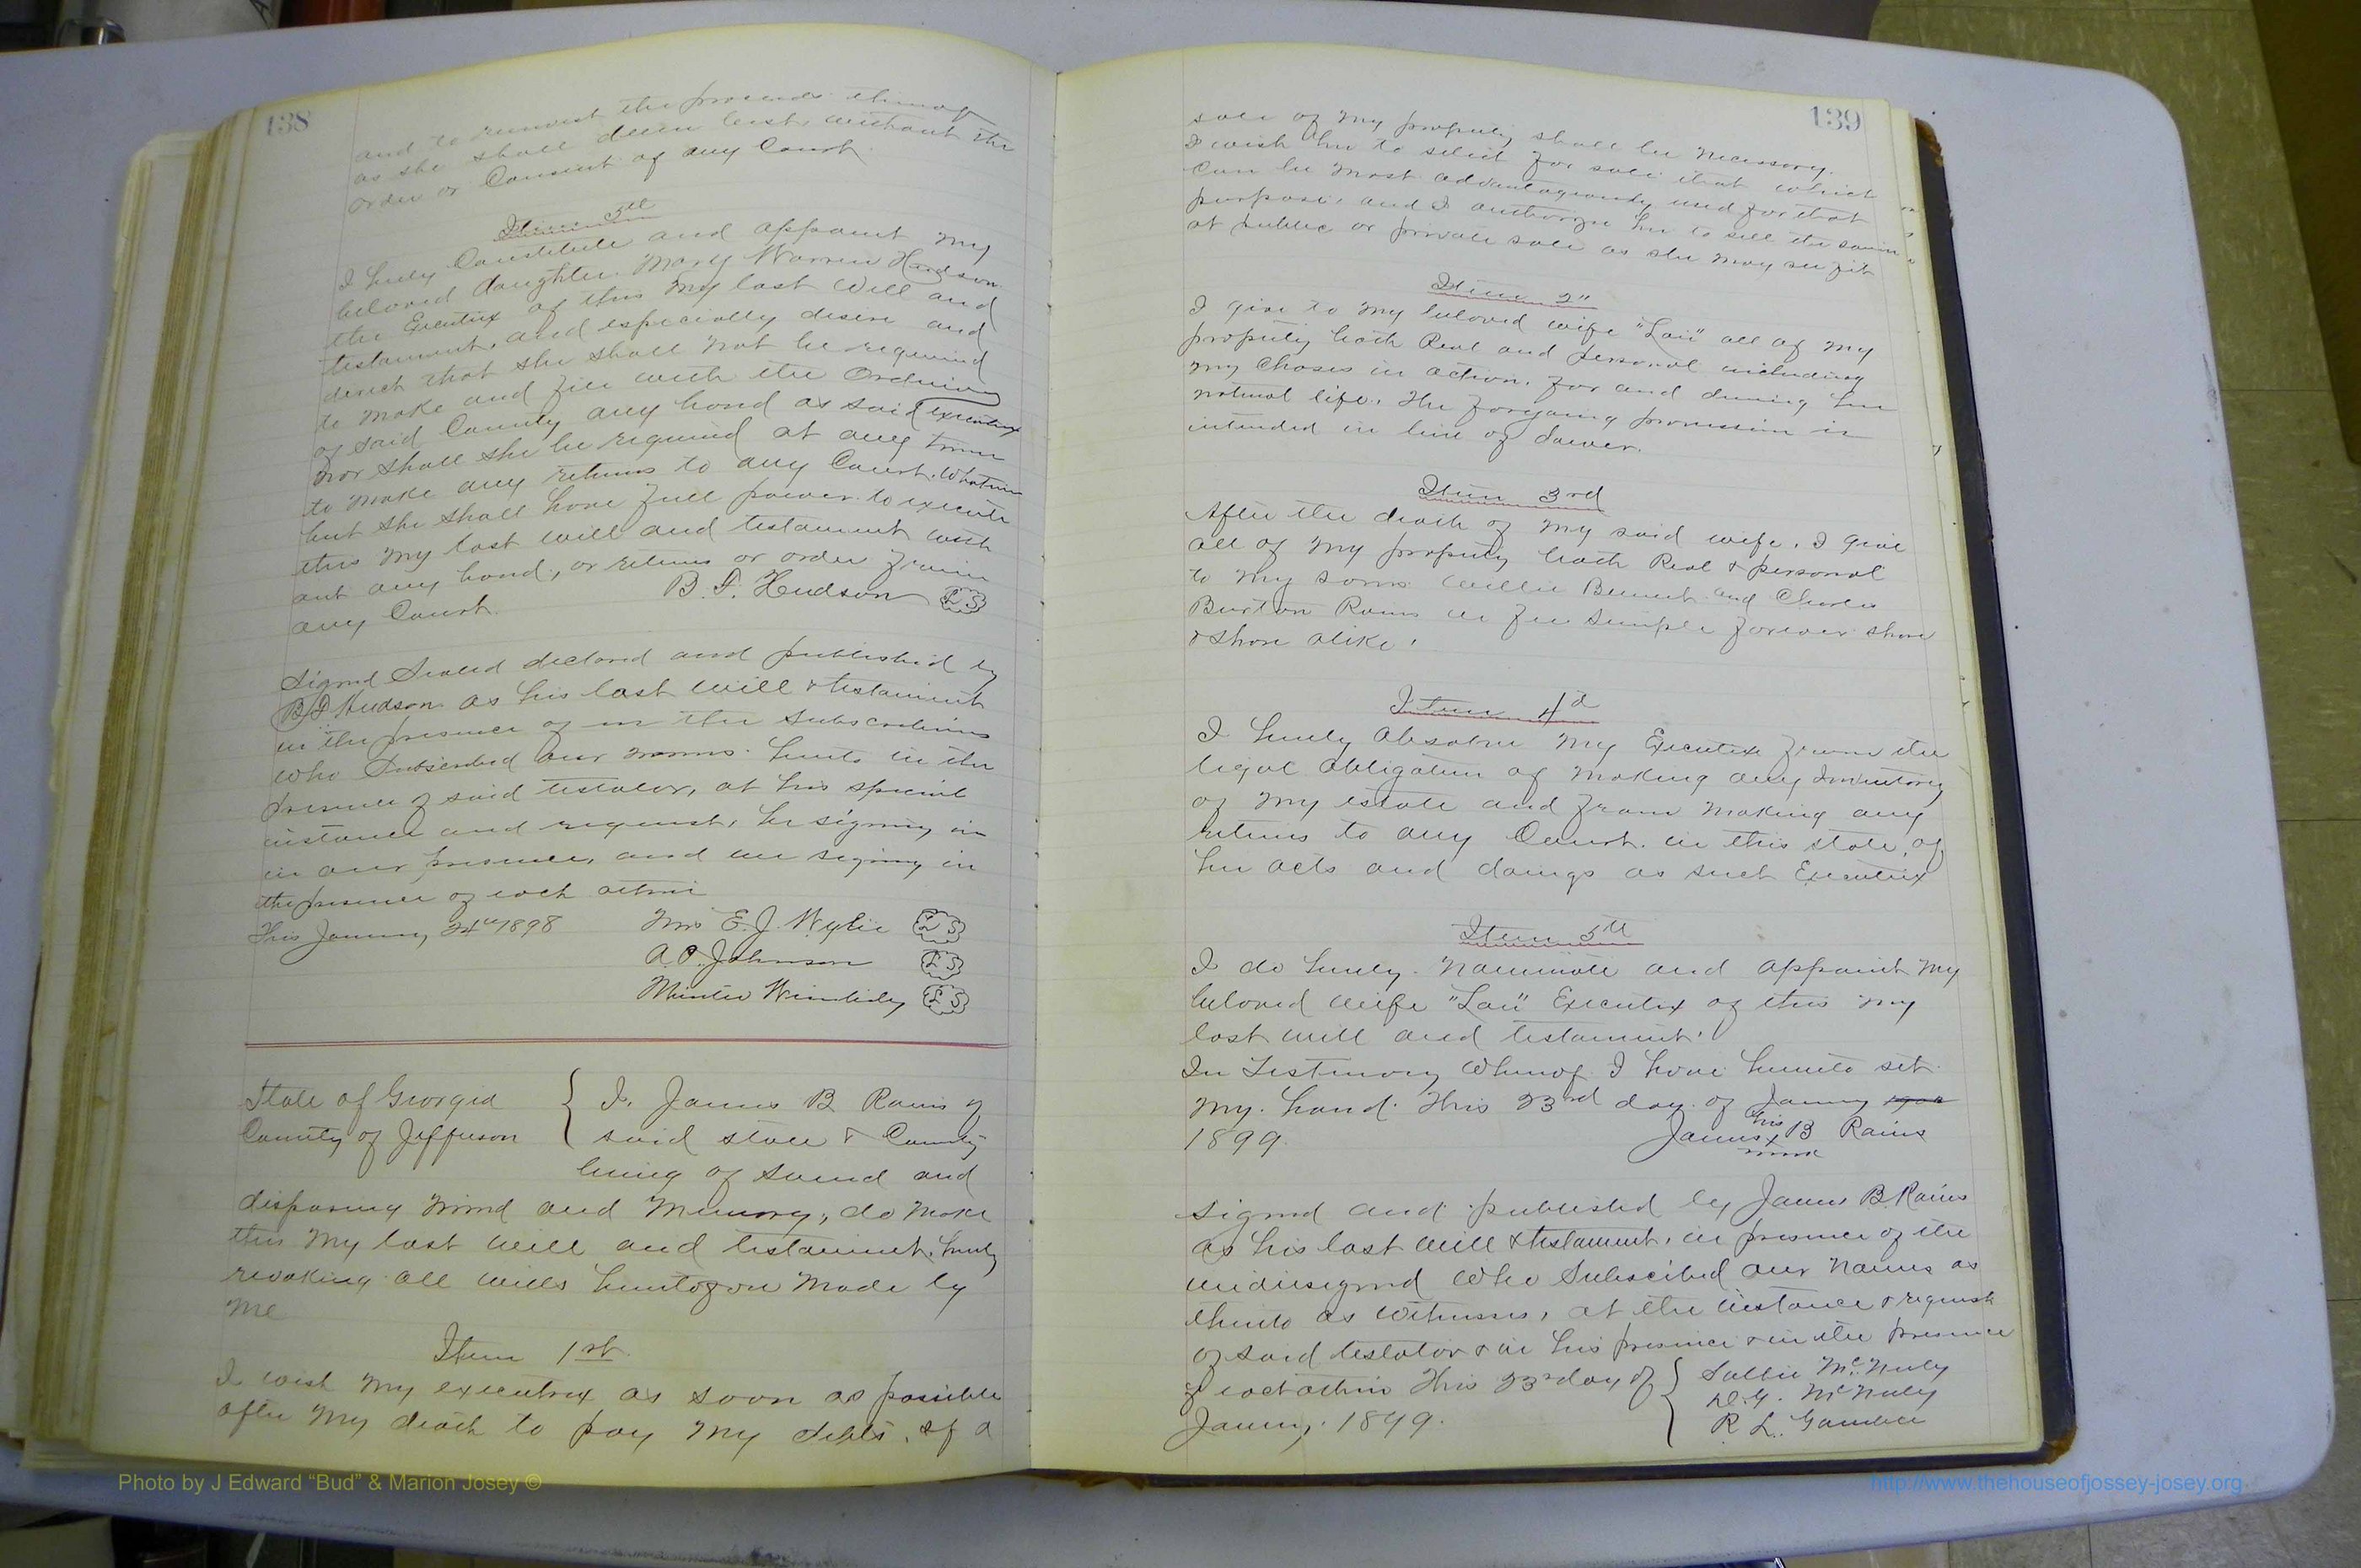 138
and to reinvest the proceeds thereof
as she shall deem best, without the
order or Consent of any Court.
Item 5th
I hereby Constitute and appoint my
beloved daughter Mary Warren Hudson
the Executrix of this my last Will and
testament, and especially desire and
direct that she shall not be required
to make and file with the Ordinary
of said County any bond as said executrix
nor shall she be required at any time
to make any returns to any Court. Whatever
but she shall have full power to execute
this my last will and testament with
out any bond, or returns or order from
any Court. B. F. Hudson LS
Signed Sealed declared and published by
B F Hudson as his last will & testament
in the presence of us the subscribers
who Subscribed our names hereto in the
presence of said testator, at his special
instance and request, he signing in
in our presence, and we signing in
the presence of each other
This January 24th 1898 Mrs E. J. Wylie LS
A. P. Johnson LS
Minter Wimberly LS
State of Georgia { I, James B Rains of
County of Jefferson said state & County
being of sound and
disposing mind and memory, do make
this my last will and testament, hereby
revoking all wills heretofore made by
me
Item 1st
I wish my executrix as soon as possible
after my death to pay my debts, if a
139
sale of my property shall be necessary.
I wish her to select for sale that which
can be most advantageously used for that
purpose, and I authorize her to sell the same
at public or private sale as she may see fit
Item 2"
I give to my beloved wife "Lou" all of my
property both Real and personal including
my choses in action, for and during her
natural life. The foregoing provision is
intended in lieu of dower.
Item 3rd
After the death of my said wife, I give
all of my property both Real & personal
to my sons Willie Bennet and Charles
Burton Rains in fee simple forever share
& share alike.
Item 4d
I hereby absolve my Executrix from the
legal obligation of making any Inventory
of my estate and from making any
returns to any Court in this state, of
her acts and doings as such Executrix
Item 5th
I do hereby nominate and appoint my
beloved wife "Lou" Executrix of this my
last will and testament.
In Testimony Whereof I have hereunto set
my hand. This 23rd day of January 1900
1899. his
James x B Rains
mark
Signed and published by James B. Rains
as his last will & testament, in presence of the
undersigned who subscribed our names as
thereto as witnesses, at the instance & request
of said testator & in his presence & in the presence
of each other This 23rd day of { Sallie McNeely
January 1899. McNeely
R. L. Gamble
Photo by J Edward “Bud” & Marion Josey ©
http://www.thehouseofjossey-josey.org